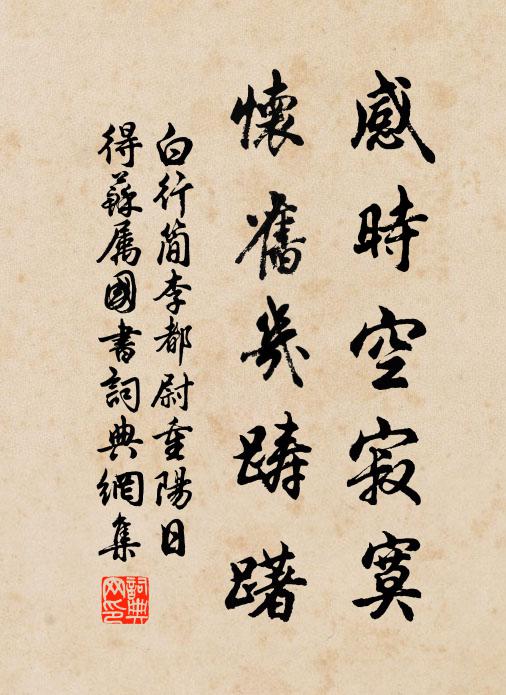 感時空寂寞
懷舊幾踌躇
白行简李都尉重陽日
得蘇属國書詞典網集
詞典網印